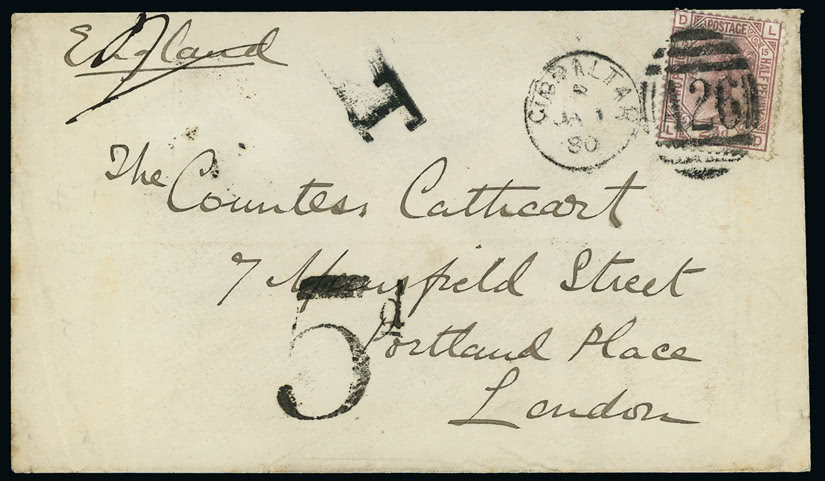 England
T
GIBRALTAR
JA 1
80
D POSTAGE L
15
HALF PENNY
A26
L D
The Countess Cathcart
7 Mansfield Street
5d
Portland Place
London